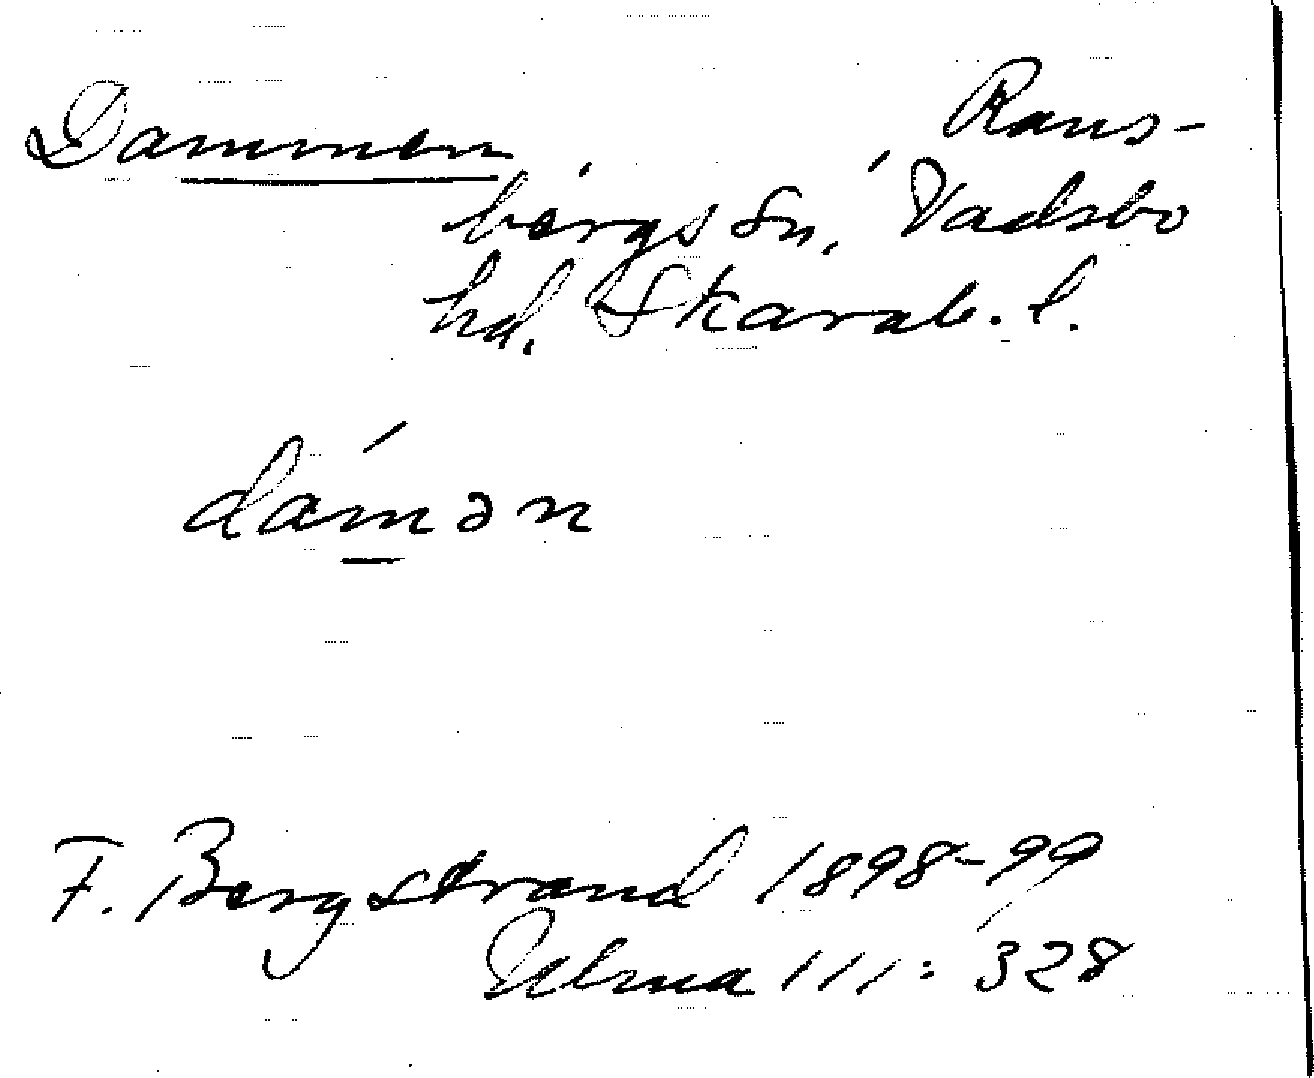 Dammen, Rans-
bergs sn, Vadsbo
hd. Skarab. l.
dámən
F. Bergstrand 1898-99
Ulma 111: 328